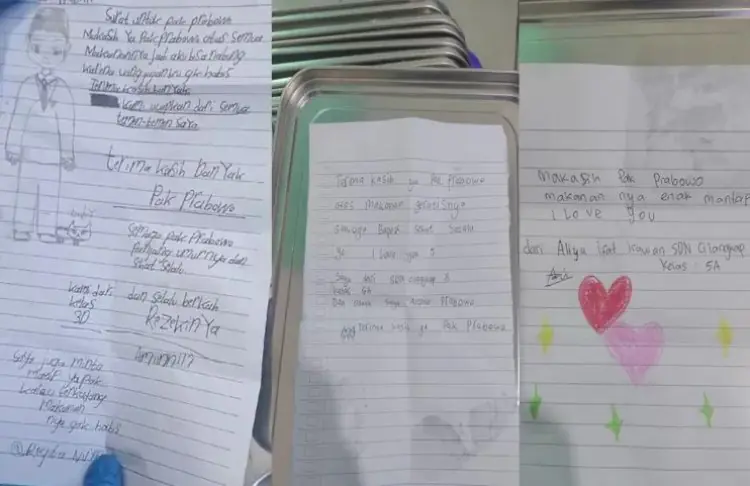 Surat untuk pak prabowo
Makasih Ya Pak Prabowo atas semua
Makanannya jadi aku bisa nabung
karna uang jajanku gk habis
Terima kasih banyak
kami ucapkan dari semua
teman-teman saya
terima kasih banyak
Pak Prabowo
Semoga pak Prabowo
panjang umurnya dan
sehat selalu
dan selalu berkah
Rezekinya
Aminnn!?
kami dari
kelas
3D
Saya juga minta
maaf ya pak
kalau terkadang
Makanan
nya gak habis
Terima kasih ya Pak Prabowo
atas Makanan gratisnya
Semoga Bapak sehat Selalu
ya I love you
Saya dari SDN cilangkap 3
kelas 6A
Dan nama saya Prabowo
Terima kasih ya Pak Prabowo
Makasih Pak Prabowo
makanan nya enak mantap
I Love You
dari Aliya Kawan SDN Cilangkap
Kelas 5A